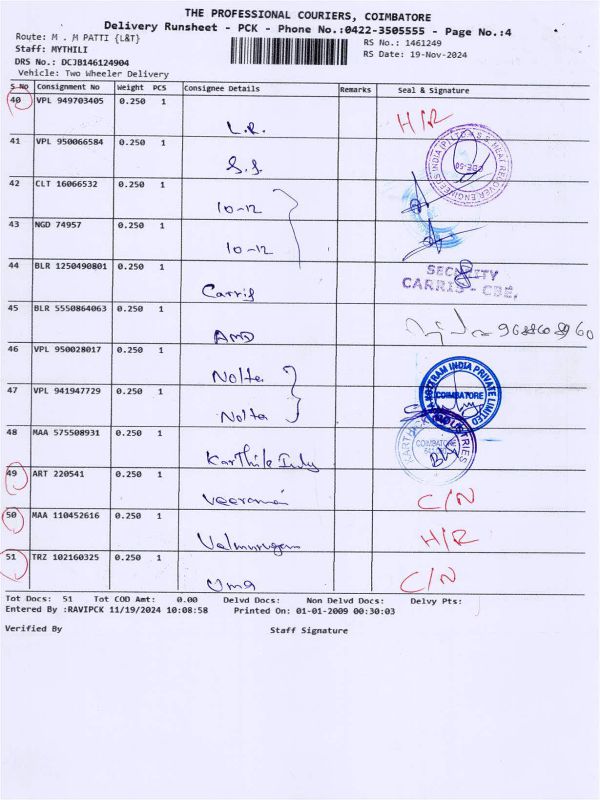 THE PROFESSIONAL COURIERS, COIMBATORE
Delivery Runsheet - PCK - Phone No.:0422-3505555 - Page No.:4
Route: M . M PATTI {L&T}
RS No.: 1461249
Staff: MYTHILI
RS Date: 19-Nov-2024
DRS No.: DCJB146124904
Vehicle: Two Wheeler Delivery
S No Consignment No Weight PCS Consignee Details Remarks Seal & Signature
40 VPL 949703405 0.250 1
L.R. H/R
41 VPL 950066584 0.250 1
S.S.
42 CLT 16066532 0.250 1
10-12
43 NGD 74957 0.250 1
10-12
44 BLR 1250490801 0.250 1
SECURITY
Carris CARRIS - CBE.
45 BLR 5550864063 0.250 1
AMD
46 VPL 950028017 0.250 1
Nolta
47 VPL 941947729 0.250 1
COIMBATORE
Nolta
48 MAA 575508931 0.250 1
COIMBATORE
Karthik Indy
49 ART 220541 0.250 1
Veeramani C/N
50 MAA 110452616 0.250 1
Velmurugan H/R
51 TRZ 102160325 0.250 1
Uma C/N
Tot Docs: 51 Tot COD Amt: 0.00 Delvd Docs: Non Delvd Docs: Delvy Pts:
Entered By :RAVIPCK 11/19/2024 10:08:58 Printed On: 01-01-2009 00:30:03
Verified By Staff Signature